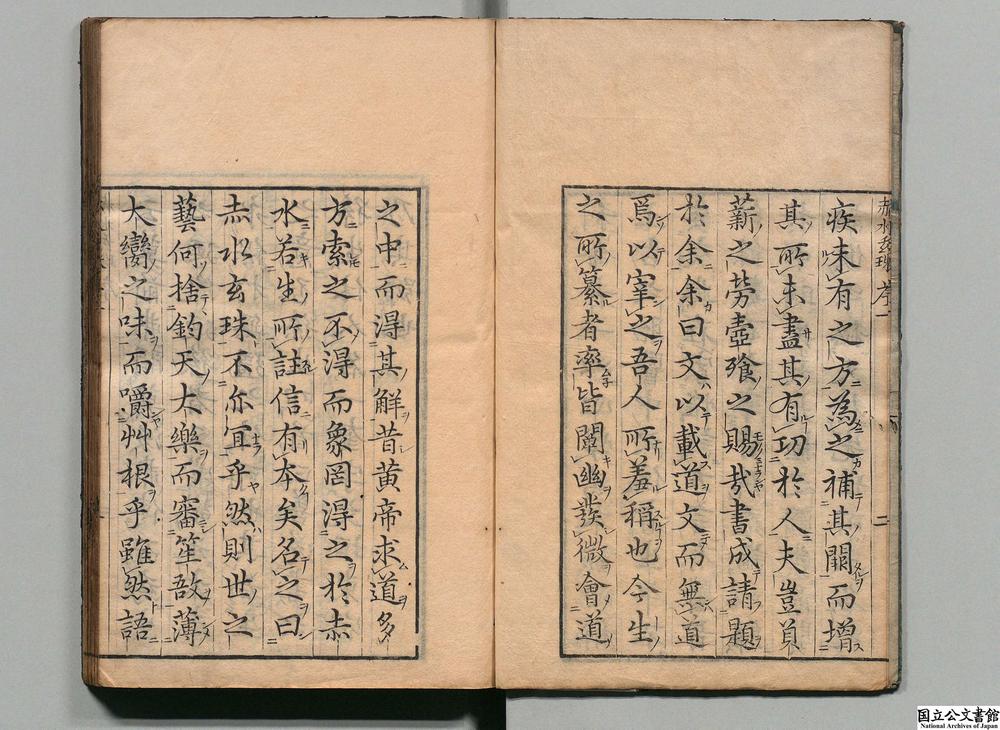 赤水玄珠 序一 二
疾未有之方為之補其闕而增
其所未盡其有功於人夫豈負
薪之勞壺飱之賜哉書成請題
於余余曰文以載道文而無道
焉以宰之吾人所羞稱也今生
之所纂者率皆闡幽發微會道
之中而得其解昔黃帝求道多
方索之不得而象罔得之於赤
水若生所註信有本矣名之曰
赤水玄珠不亦宜乎然則世之
藝何捨鈞天大樂而審笙敔薄
大臠之味而嚼艸根乎雖然語
国立公文書館
National Archives of Japan